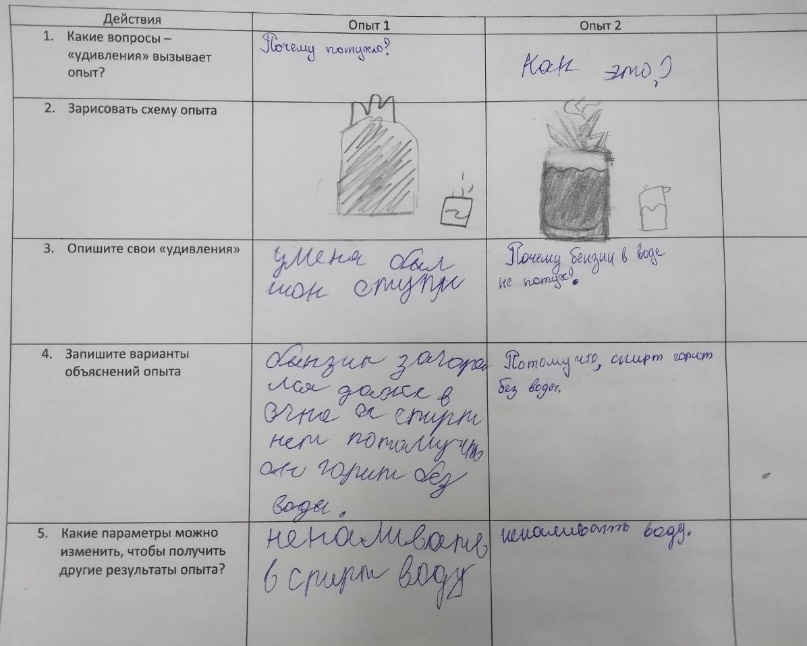 Действия
Опыт 1
Опыт 2
1. Какие вопросы –
«удивления» вызывает
опыт?
Почему потухло?
Как это?
2. Зарисовать схему опыта
3. Опишите свои «удивления»
уменя был
шок
Почему бензин в воде
не потух?
4. Запишите варианты
объяснений опыта
бензин загоре
лся даже в
а спирт
нет потомучто
он горит без
воды.
Потому что, спирт горит
без воды.
5. Какие параметры можно
изменить, чтобы получить
другие результаты опыта?
неналивать
в спирт воду
неналивать воду.